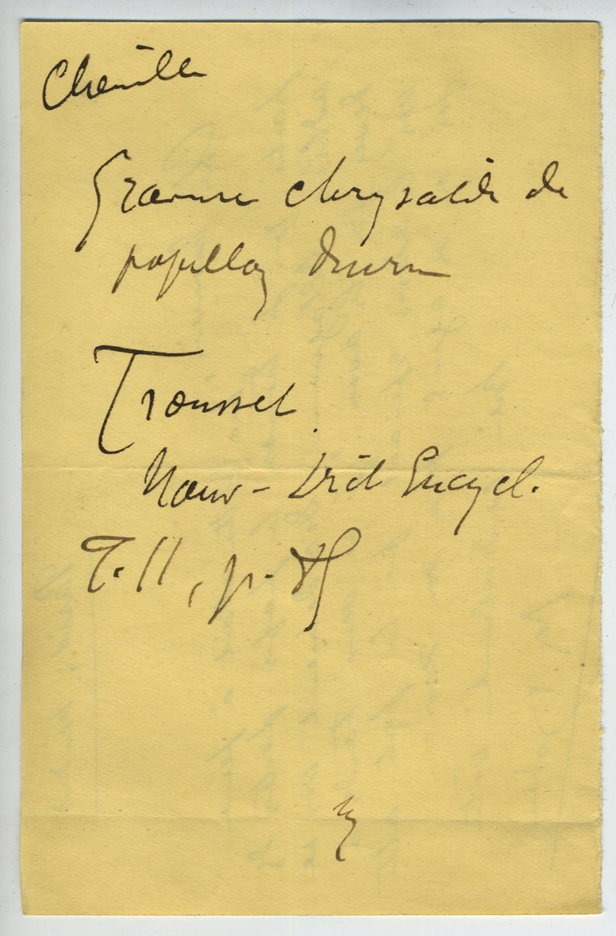 Chenille
Gravure chrysalide de
papillon diurne
Trousset.
Nouv - Dict Encycl.
T. II, p.